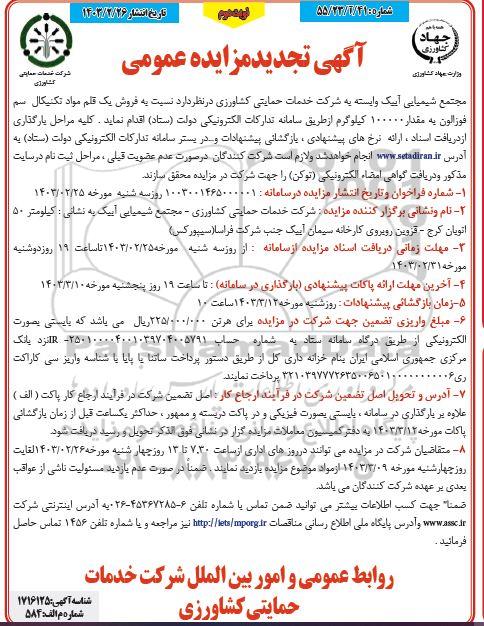 شماره: ۵۵/۲۳/ آ/۴۱۰
نوبت دوم
تاریخ انتشار ۱۴۰۳/۲/۲۶
همه با هم
جهاد
کشاورزی
وزارت جهاد کشاورزی
شرکت خدمات حمایتی
کشاورزی
آگهی تجدیدمزایده عمومی
مجتمع شیمیایی آبیک وابسته به شرکت خدمات حمایتی کشاورزی درنظردارد نسبت به فروش یک قلم مواد تکنیکال سم
فوزالون به مقدار۱۰۰۰۰۰ کیلوگرم ازطریق سامانه تدارکات الکترونیکی دولت (ستاد) اقدام نماید . کلیه مراحل بارگذاری
ازدریافت اسناد ، ارائه نرخ های پیشنهادی ، بازگشائی پیشنهادات و..در بستر سامانه تدارکات الکترونیکی دولت (ستاد) به
آدرس www.setadiran.ir انجام خواهدشد ولازم است شرکت کنندگان درصورت عدم عضویت قبلی ، مراحل ثبت نام درسایت
مذکور ودریافت گواهی امضاء الکترونیکی (توکن) را جهت شرکت در مزایده محقق سازند.
۱- شماره فراخوان و تاریخ انتشار مزایده درسامانه : ۱۰۰۳۰۰۱۴۶۵۰۰۰۰۰۱ روزسه شنبه مورخه ۱۴۰۳/۰۲/۲۵
۲- نام ونشانی برگزار کننده مزایده : شرکت خدمات حمایتی کشاورزی - مجتمع شیمیایی آبیک به نشانی : کیلومتر ۵۰
اتوبان کرج - قزوین روبروی کارخانه سیمان آبیک جنب شرکت فراسا(سیپورکس)
۳- مهلت زمانی دریافت اسناد مزایده ازسامانه : از روزسه شنبه مورخه۱۴۰۳/۰۲/۲۵تاساعت ۱۹ روزدوشنبه
مورخه۱۴۰۳/۰۲/۳۱
۴- آخرین مهلت ارائه پاکات پیشنهادی (بارگذاری در سامانه) : تا ساعت ۱۹ روز پنجشنبه مورخه۱۴۰۳/۳/۱۰
۵-زمان بازگشائی پیشنهادات : روزشنبه مورخه۱۴۰۳/۳/۱۲ساعت ۱۰
۶- مبلغ واریزی تضمین جهت شرکت در مزایده برای هرتن ۲۲۵/۰۰۰/۰۰۰ریال می باشد که بایستی بصورت
الکترونیکی از طریق درگاه سامانه ستاد به شماره حساب
مرکزی جمهوری اسلامی ایران بنام خزانه داری کل از طریق دستور پرداخت ساتنا یا پایا با شناسه واریز سی کاراکت
پرداخت نمایند.
۷- آدرس و تحویل اصل تضمین شرکت در فرآیند ارجاع کار : اصل تضمین شرکت در فرآیند ارجاع کار پاکت ( الف )
علاوه بر بارگذاری در سامانه ، بایستی بصورت فیزیکی و در پاکت دربسته و ممهور ، حداکثر یکساعت قبل از زمان بازگشائی
پاکات مورخه۱۴۰۳/۳/۱۲ به دفترکمیسیون معاملات مزایده گزار در نشانی فوق الذکر تحویل و رسید دریافت شود.
۸- متقاضیان شرکت در مزایده می توانند درروز های اداری ازساعت ۷.۳۰ تا ۱۳ روزچهار شنبه مورخه۱۴۰۳/۰۲/۲۶لغایت
روزچهارشنبه مورخه ۱۴۰۳/۰۳/۰۹ ازمواد موضوع مزایده بازدید نمایند . ضمناً در صورت عدم بازدید مسئولیت ناشی از عواقب
بعدی بر عهده شرکت کنندگان می باشد.
ضمنا" جهت کسب اطلاعات بیشتر می توانید ضمن تماس با شماره تلفن ۶-۴۵۳۶۷۲۸۵-۰۲۶به آدرس اینترنتی شرکت
www.assc.ir وآدرس پایگاه ملی اطلاع رسانی مناقصات http://iets/mporg.ir نیز مراجعه و یا شماره تلفن ۱۴۵۶ تماس حاصل
فرمائید .
روابط عمومی و امور بین الملل شرکت خدمات
حمایتی کشاورزی
شناسه آگهی: ۱۷۱۶۱۲۵
شماره م الف: ۵۸۴